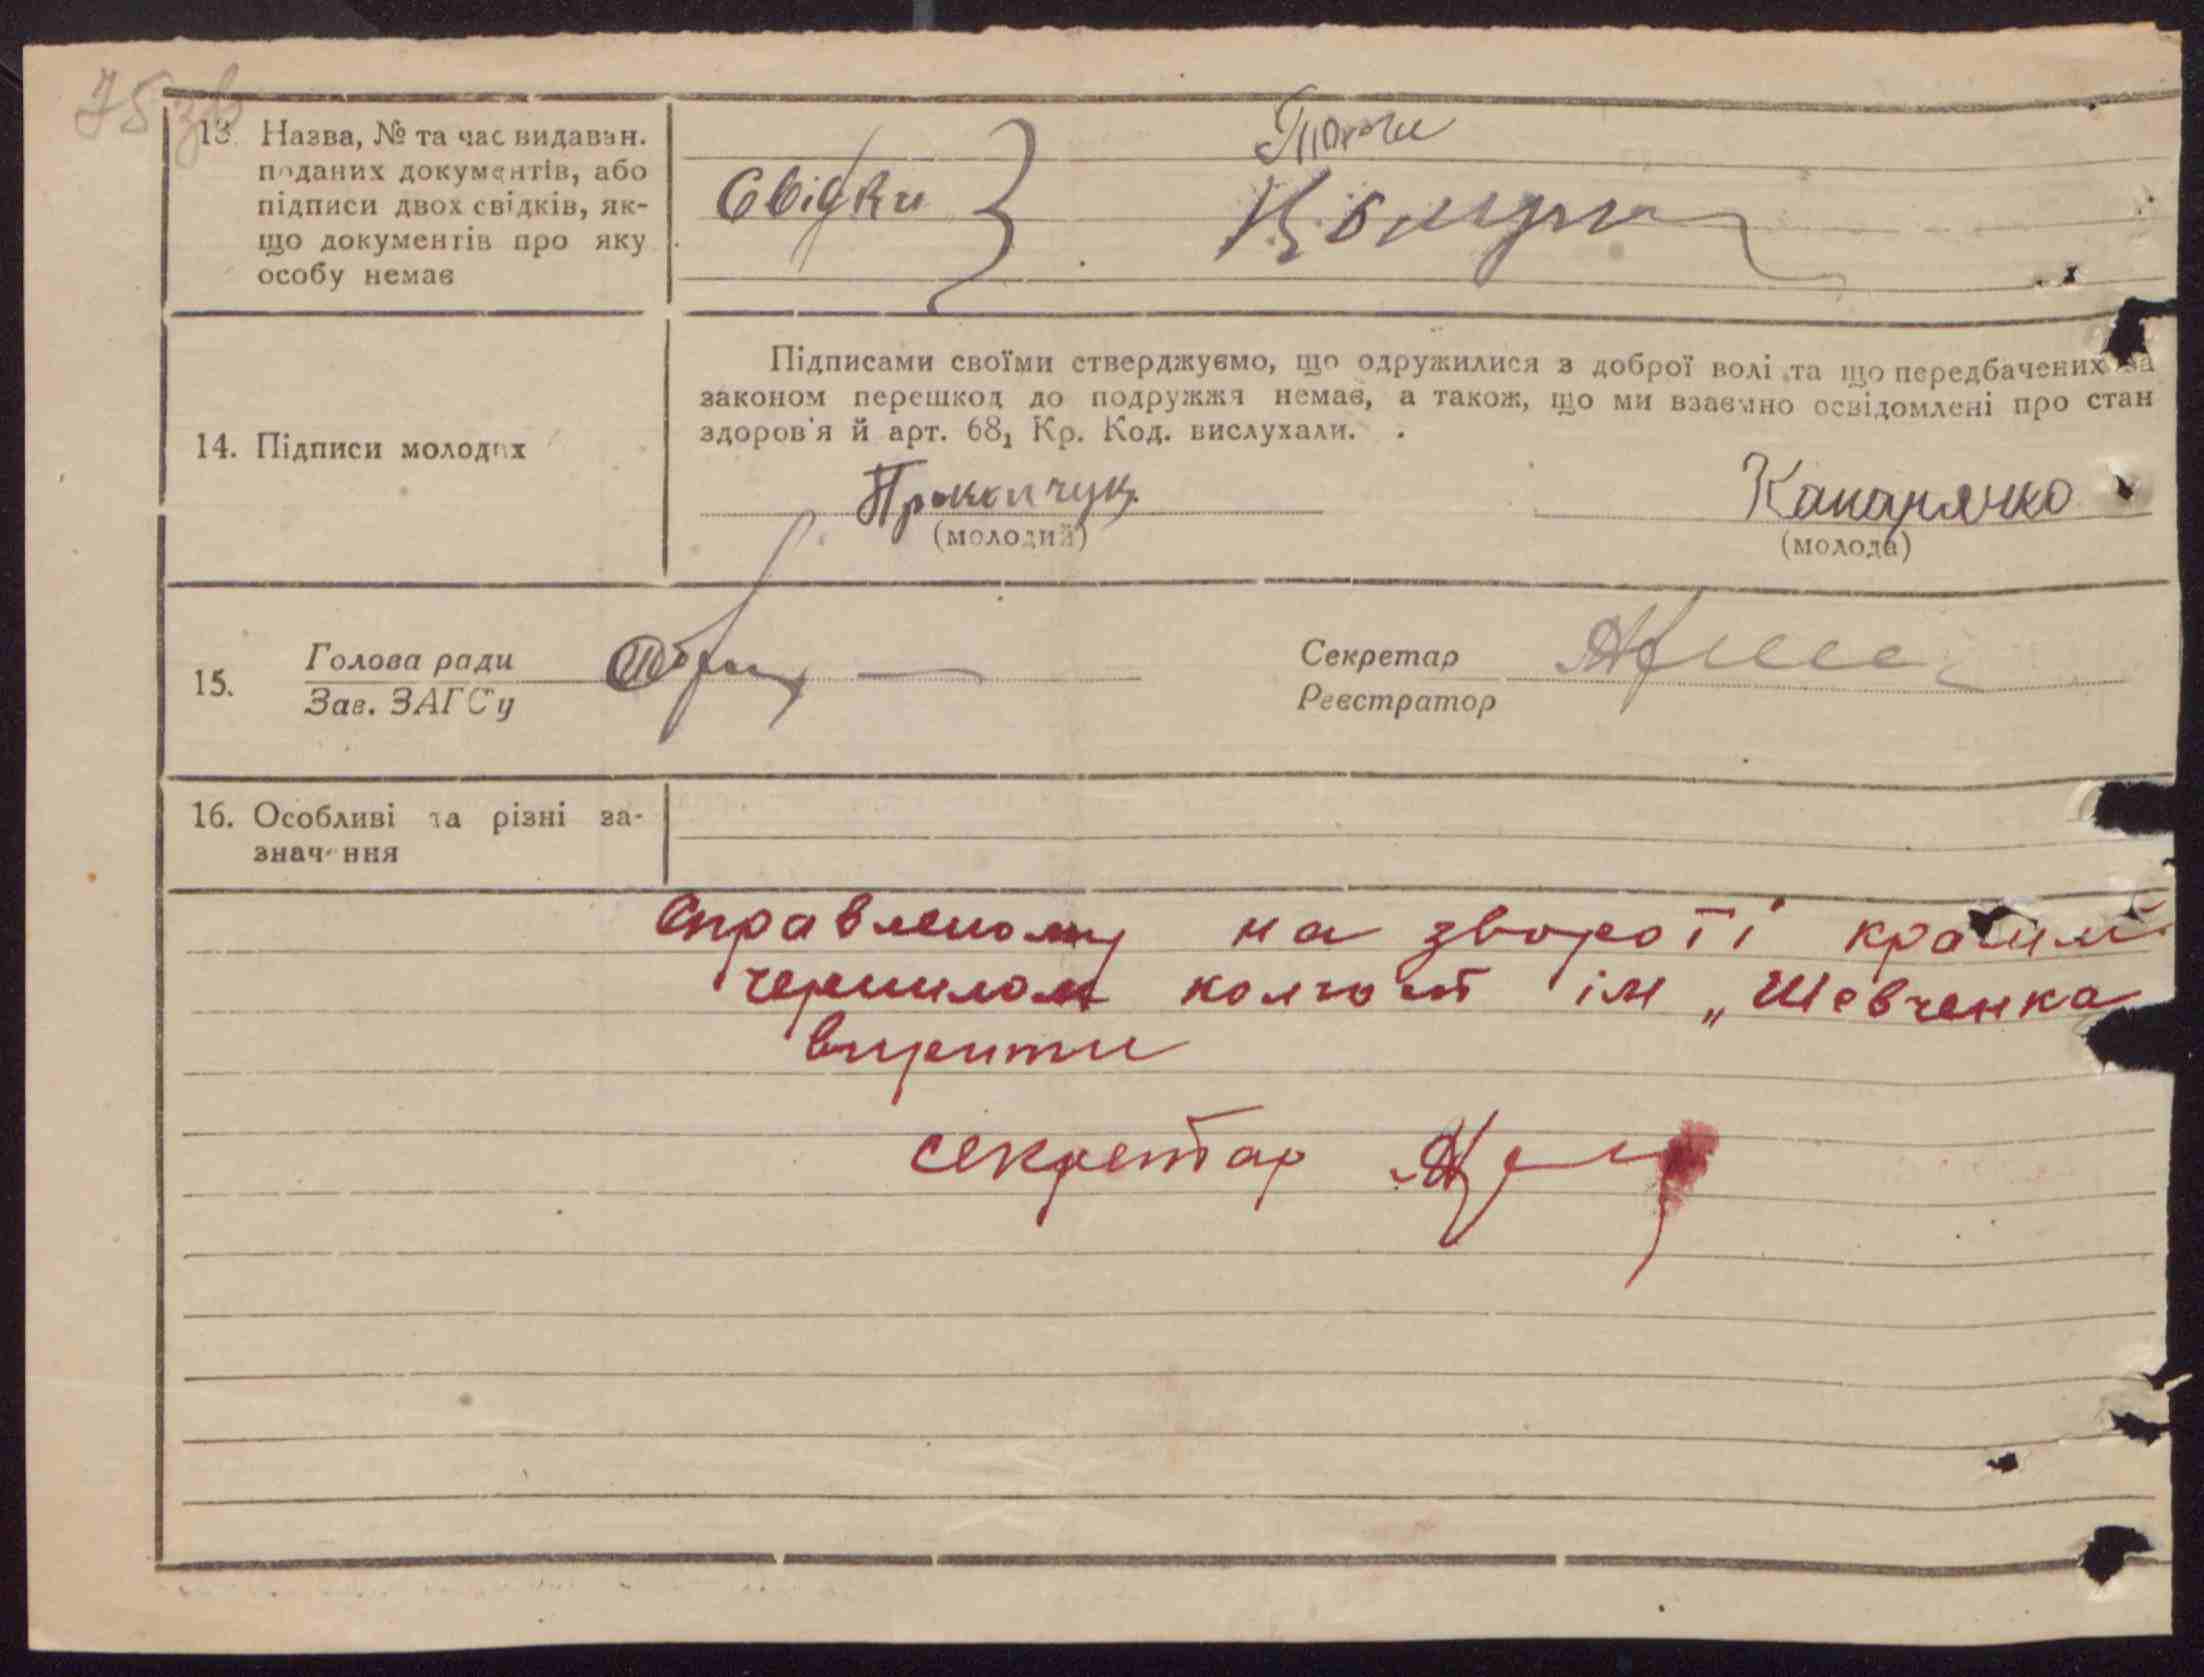 75 зв
13. Назва, № та час видаван.
поданих документів, або
підписи двох свідків, як-
що документів про яку
особу немає
Свідки
14. Підписи молодих
Підписами своїми стверджуємо, що одружилися з доброї волі та що передбачених за
законом перешкод до подружжя немає, а також, що ми взаємно освідомлені про стан
здоров'я й арт. 68₁ Кр. Код. вислухали.
(молодий)
(молода)
15. Голова ради
Зав. ЗАГСу
Секретар
Реєстратор
16. Особливі та різні за-
значення
Справленому на звороті
чернилом колгосп ім „Шевченка
вирити
секретар